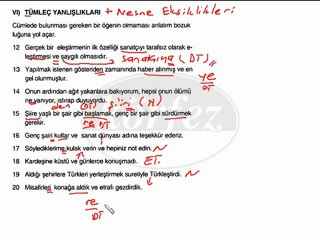 VI) TÜMLEÇ YANLIŞLIKLARI + Nesne Eksiklikleri
Cümlede bulunması gereken bir öğenin olmaması anlatım bozuk
luğuna yol açar.
12 Gerçek bir eleştirmenin ilk özelliği sanatçıyı tarafsız olarak e-
leştirmesi ve saygılı olmasıdır. sanatçıya (DT)
13 Yapılmak istenen gösteriden zamanında haber alınmış ve en
gel olunmuştur. ye
DT
14 Onun ardından ağıt yakanlara bakıyorum, hepsi onun ölümü
ne yanıyor, ıstırap duyuyordu.
den (DT) şiiri (N)
15 Şiire yaşlı bir şair gibi başlamak, genç bir şair gibi sürdürmek
gerekir. re DT
16 Genç şairi kutlar ve sanat dünyası adına teşekkür ederiz.
17 Söylediklerime kulak verin ve hepiniz not edin. N
18 Kardeşine küstü ve günlerce konuşmadı. ET.
19 Aldığı şehirlere Türkleri yerleştirmek suretiyle Türkleştirdi. N
20 Misafirleri konağa aldık ve etrafı gezdirdik.
re
DT